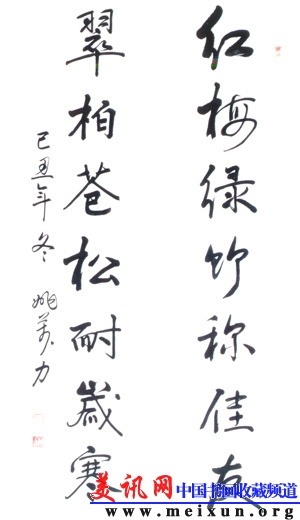 红梅绿竹称佳友
翠柏苍松耐岁寒
己丑年冬 姚万力
美讯网
中国书画收藏频道
www.meixun.org